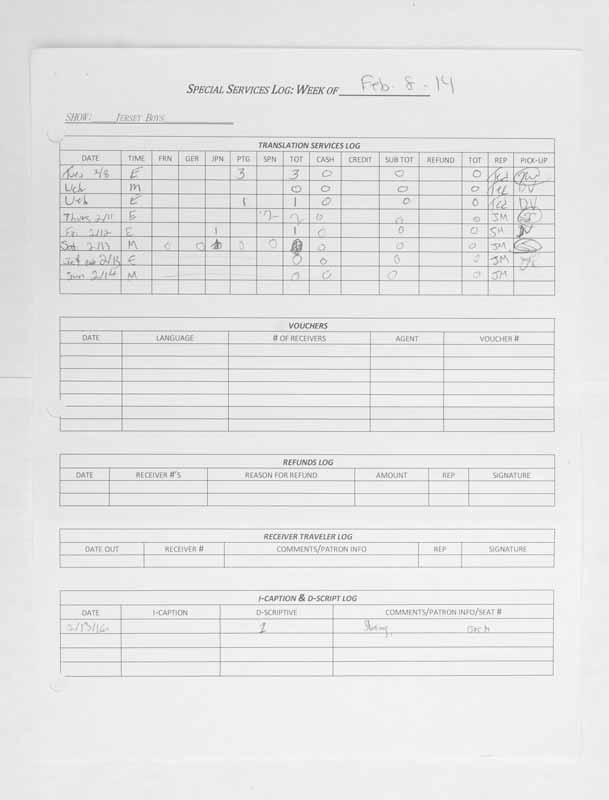 SPECIAL SERVICES LOG: WEEK OF Feb. 8 - 14
SHOW: JERSEY BOYS
TRANSLATION SERVICES LOG
DATE TIME FRN GER JPN PTG SPN TOT CASH CREDIT SUB TOT REFUND TOT REP PICK-UP
Tues 2/8 E 3 3 0 0 0 Ted
M 0 0 0 0 Ted DV
E 1 1 0 0 0 Ted DV
Thurs 2/11 E 2 2 0 0 0 JM
Fri 2/12 E 1 1 0 0 0 SM
Sat 2/13 M 0 0 0 0 0 0 0 JM
2/13 E 0 0 0 0 JM
Sun 2/14 M 0 0 0 0 JM
VOUCHERS
DATE LANGUAGE # OF RECEIVERS AGENT VOUCHER #
REFUNDS LOG
DATE RECEIVER #'S REASON FOR REFUND AMOUNT REP SIGNATURE
RECEIVER TRAVELER LOG
DATE OUT RECEIVER # COMMENTS/PATRON INFO REP SIGNATURE
I-CAPTION & D-SCRIPT LOG
DATE I-CAPTION D-SCRIPTIVE COMMENTS/PATRON INFO/SEAT #
2/13/16 1